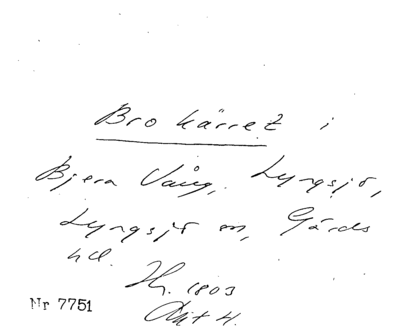 Bro kärret i
Bjera Vång, Lyngsjö,
Lyngsjö sn, Gärds
hd.
Hy. 1803
Akt 4.
Nr 7751